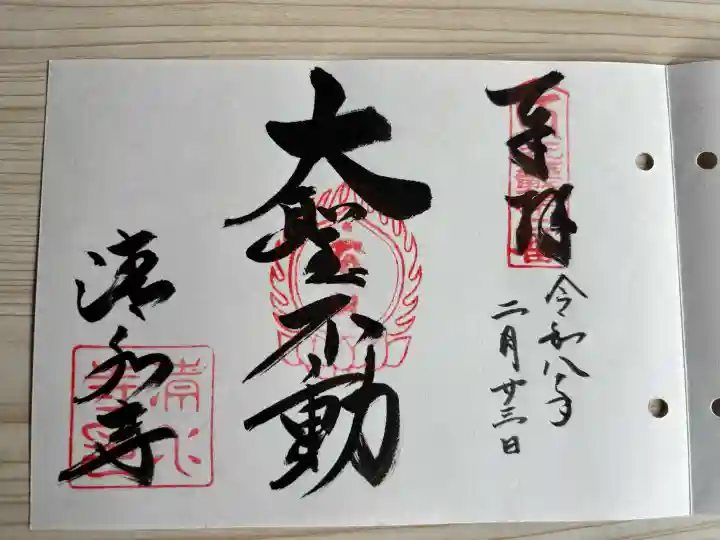 奉拝
令和八年
二月廿三日
大聖不動
清和寺